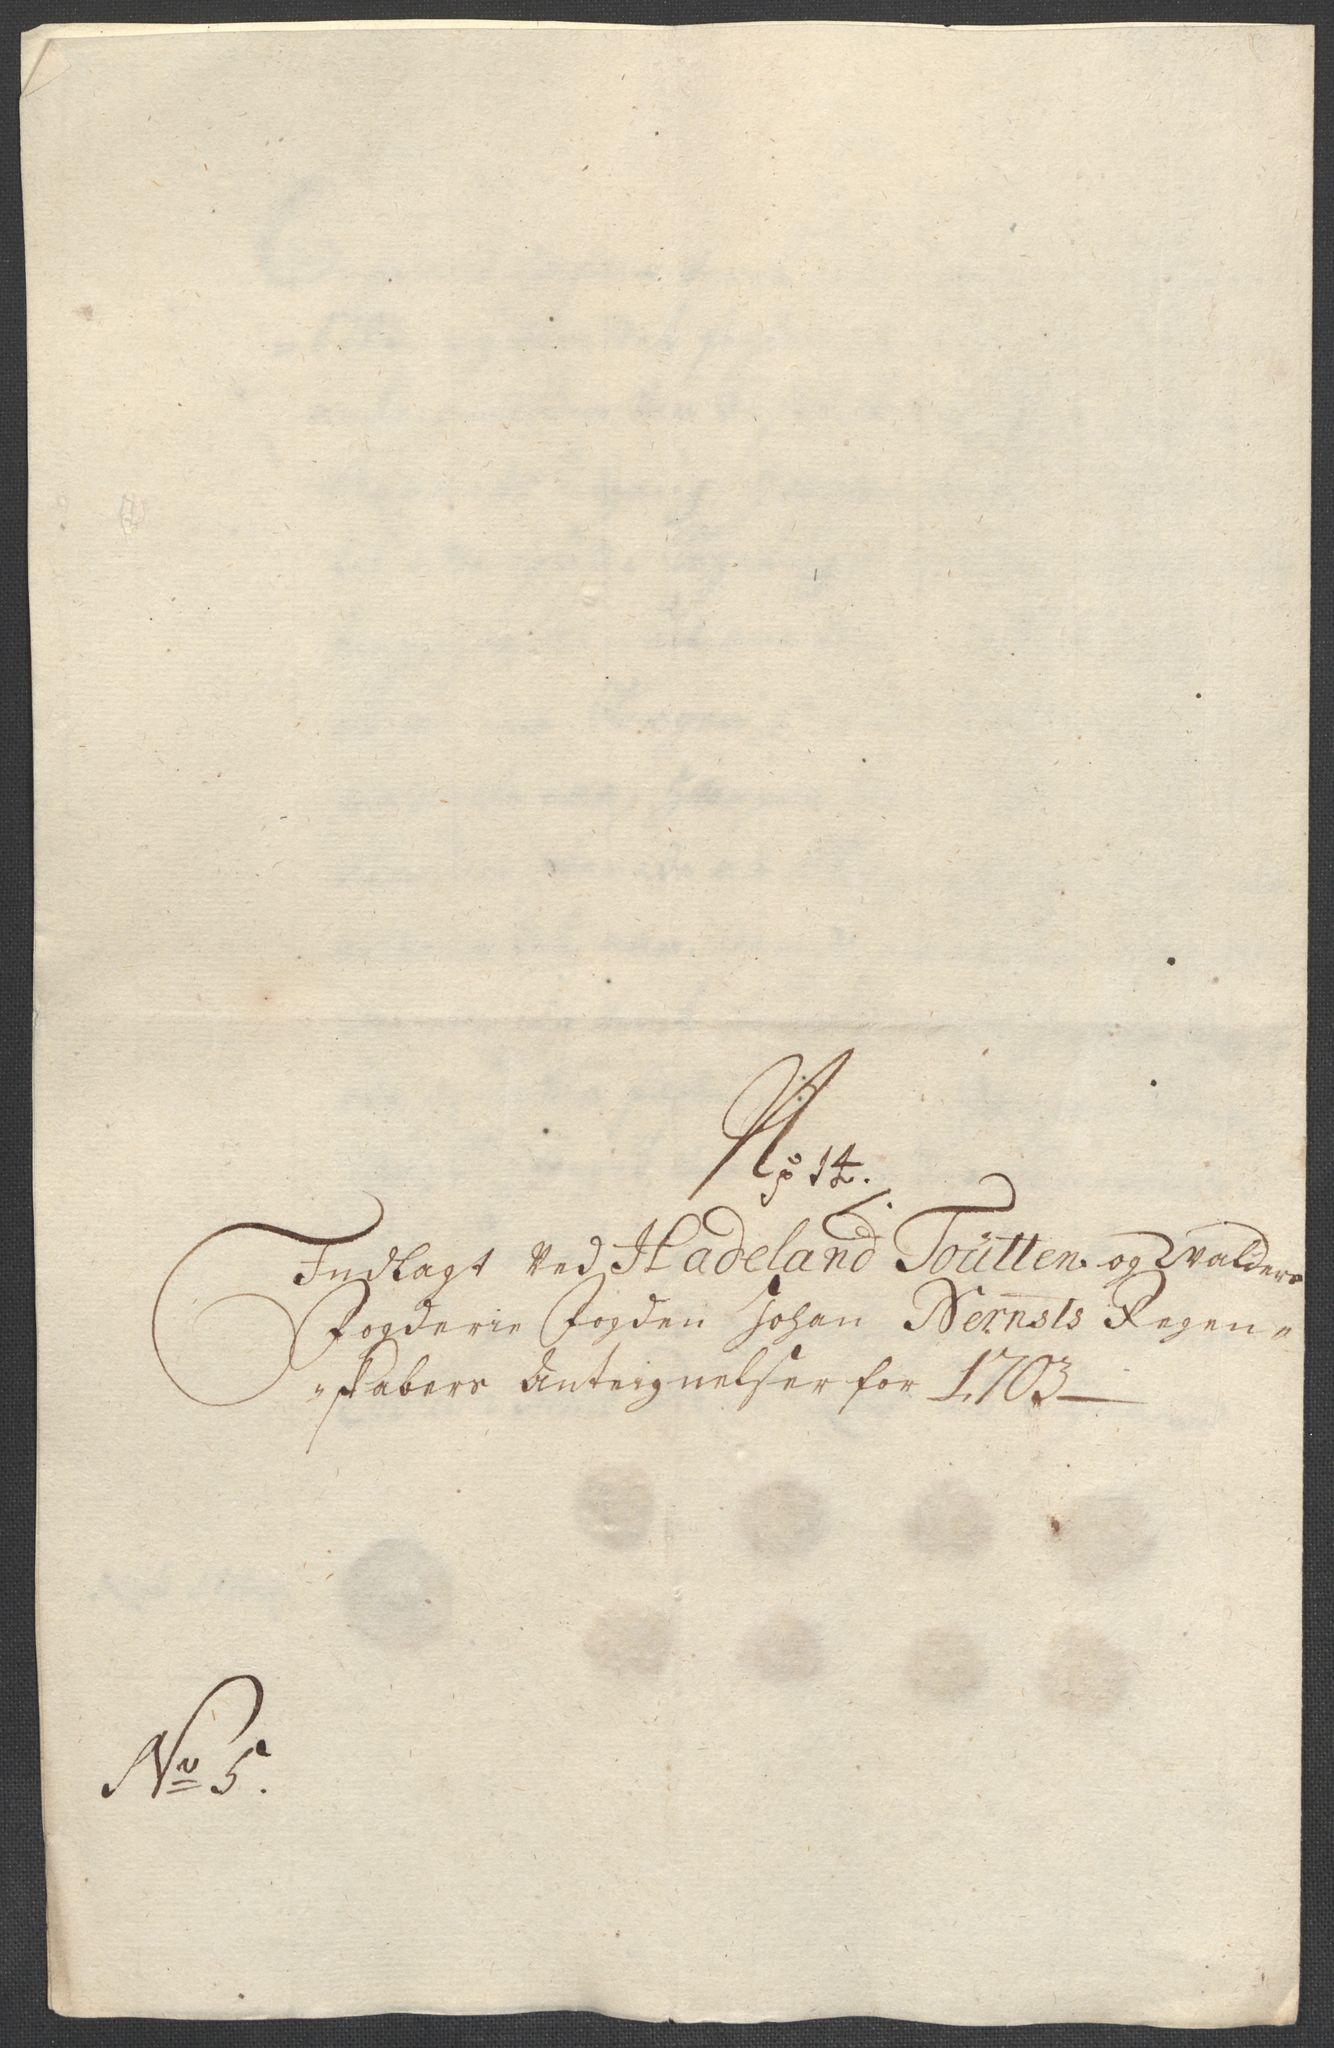 No 14.
Indlagt ved Hadeland Toütten og Walders
Fogderie Fogden Johan Nernsts Regen-
skabers Anteignelser for 1703
No 5.